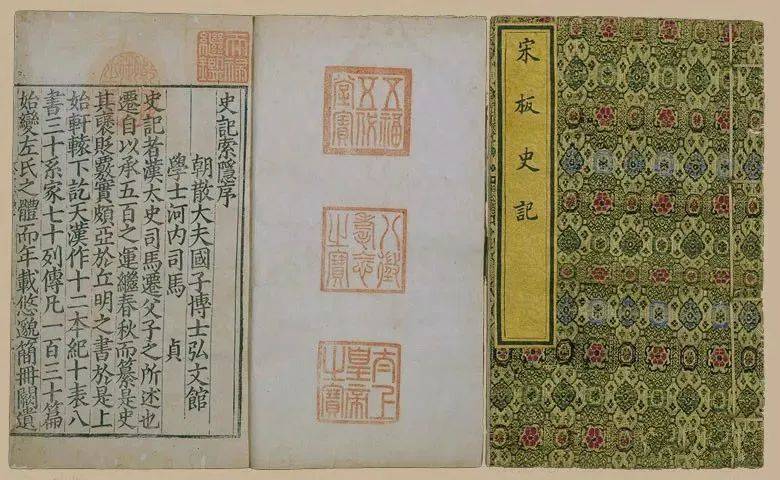 宋板史記
五福
五代
堂寶
八徵
耄念
之寶
太上
皇帝
之寶
天祿
繼鑑
史記索隱序
朝散大夫國子博士弘文館
學士河内司馬 貞
史記者漢太史司馬遷父子之所述也
遷自以承五百之運繼春秋而纂是史
其襃貶覈實頗亞於丘明之書於是上
始軒轅下訖天漢作十二本紀十表八
書三十系家七十列傳凡一百三十篇
始變左氏之體而年載悠邈簡冊闕遺